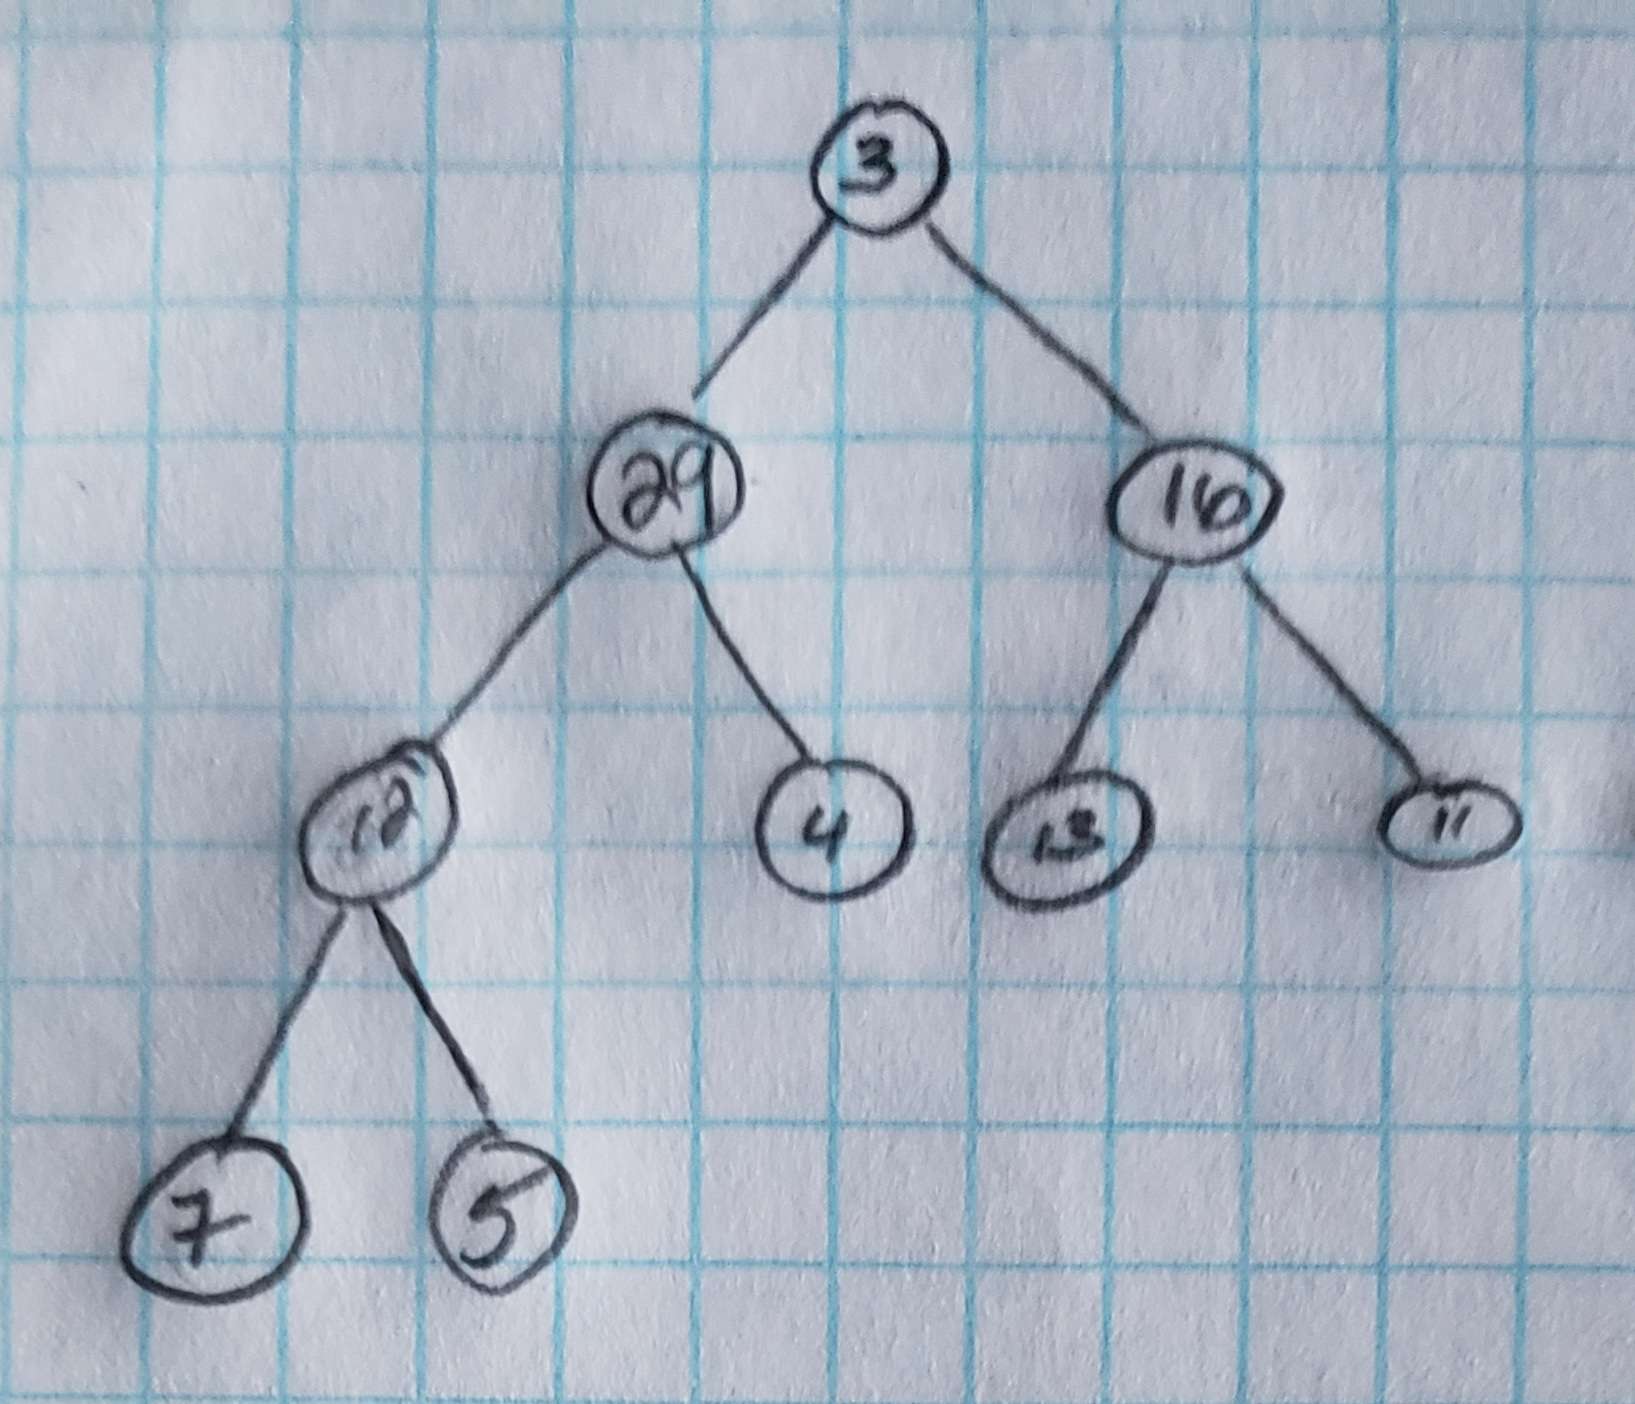 3
29 16
12 4 13 11
7 5